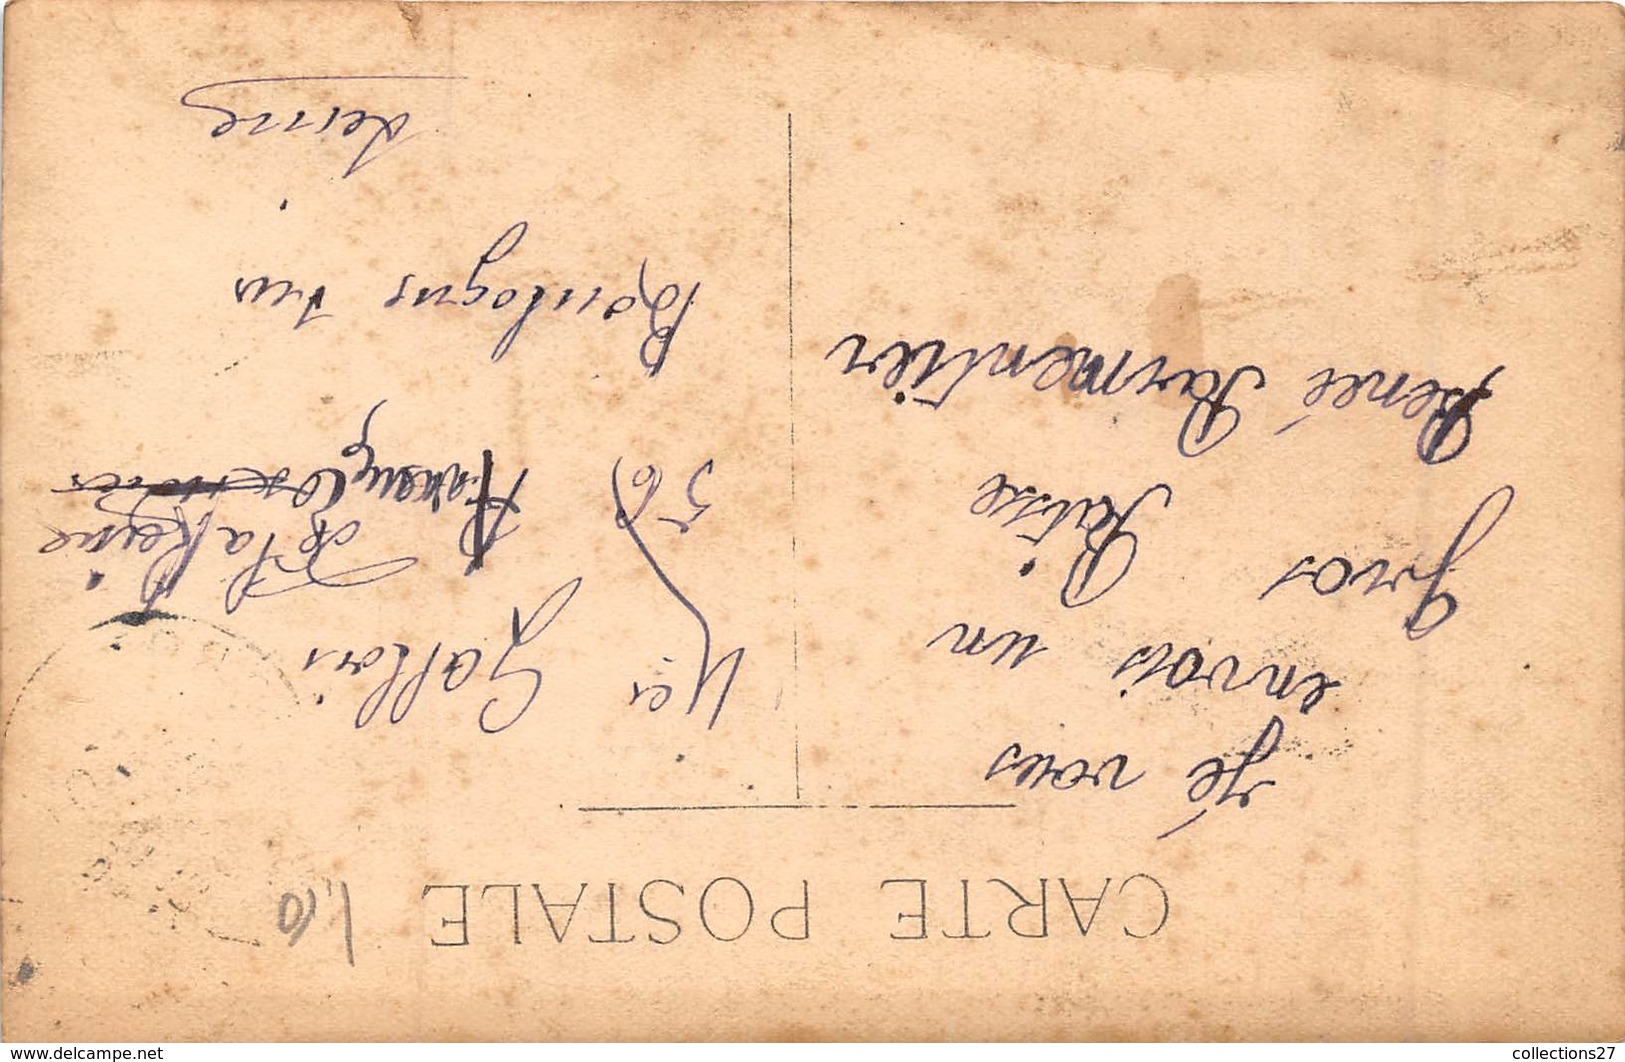 CARTE POSTALE
1,10
Jé vous
envois un
Gros Baisse
Reneé Parmentier
Mer Gallois
56
de la Reine
Boulogne
seine
www.delcampe.net
collections27